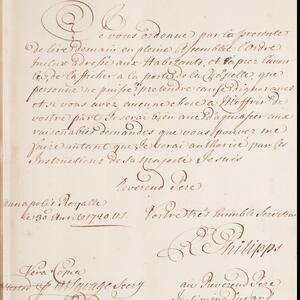 Je vous ordonne par la presente
de lire Demain en pleine Assemblée l'Ordre
Inclus adressé aux Habitants, et apres l'avoir
lû de l'afficher a la porte de la Chapelle, que
personne ne puisse pretendre cause d'ignorance
et si vous avez aucune chose a M'offrir de
vostre part Je serai bien aise d'aquiesser aux
raisonables demandes que vous pouvez me
faire autant que Je serai authorisé par les
Instructions de sa Majesté Je suis
Reverend Pere
Annapolis Royalle
le 30 Avril 1720. V.S.
Vostre très humble Serviteur
R Philipps
Vera Copia
Savage Secry
au Reverend Pere
Justinien Durand